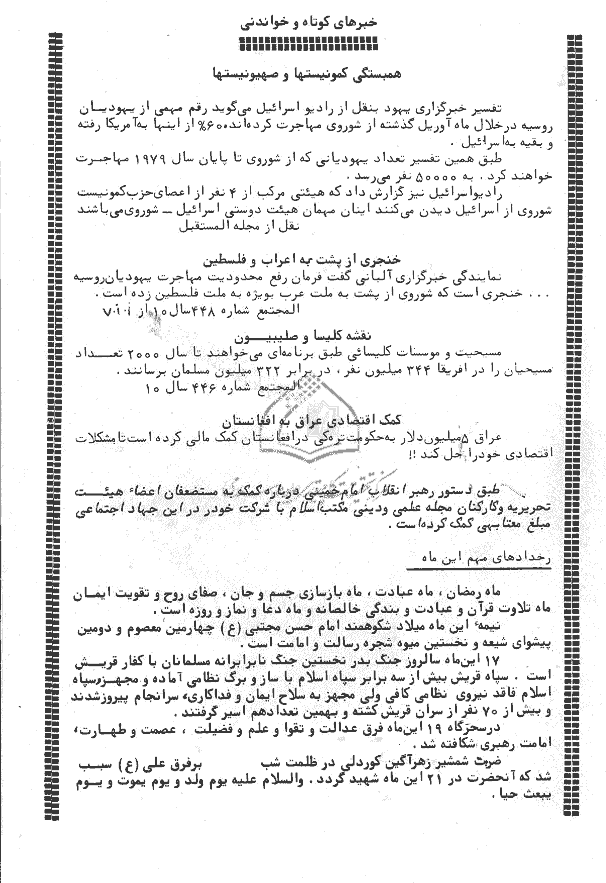 خبرهای کوتاه و خواندنی
همبستگی کمونیستها و صهیونیستها
تفسیر خبرگزاری یهود بنقل از رادیو اسرائیل می‌گوید رقم مهمی از یهودیان
روسیه درخلال ماه آوریل گذشته از شوروی مهاجرت کرده‌اند ۶۰۰% از اینها به‌آمریکا رفته
و بقیه به‌اسرائیل .
طبق همین تفسیر تعداد یهودیانی که از شوروی تا پایان سال ۱۹۷۹ مهاجرت
خواهند کرد . به ۵۰۰۰۰ نفر می‌رسد .
رادیواسرائیل نیز گزارش داد که هیئتی مرکب از ۴ نفر از اعصای‌حزب‌کمونیست
شوروی از اسرائیل دیدن می‌کنند اینان مهمان هیئت دوستی اسرائیل ــ شوروی‌می‌باشند
نقل از مجله المستقبل
خنجری از پشت به اعراب و فلسطین
نمایندگی خبرگزاری آلبانی گفت فرمان رفع محدودیت مهاجرت یهودیان‌روسیه
... خنجری است که شوروی از پشت به ملت عرب بویژه به ملت فلسطین زده است .
المجتمع شماره ۴۴۸ سال ۱۰ از
نقشه کلیسا و صلیبیون
مسیحیت و موسسات کلیسائی طبق برنامه‌ای می‌خواهند تا سال ۲۰۰۰ تعداد
مسیحیان را در افریقا ۳۴۴ میلیون نفر ، در برابر ۳۲۲ میلیون مسلمان برسانند .
المجتمع شماره ۴۴۶ سال ۱۰
کمک اقتصادی عراق به افغانستان
عراق ۵میلیون‌دلار به‌حکومت‌تره‌کی درافغانستان کمک مالی کرده است‌تامشکلات
اقتصادی خودرا حل کند !!
طبق دستور رهبر انقلاب امام‌خمینی درباره کمک به مستضعفان اعضاء هیئت
تحریریه وکارکنان مجله علمی ودینی مکتب‌اسلام با شرکت خودر در این جهاد اجتماعی
مبلغ معتابهی کمک کرده‌است .
رخدادهای مهم این ماه
ماه رمضان ، ماه عبادت ، ماه بازسازی جسم و جان ، صفای روح و تقویت ایمان
ماه تلاوت قرآن و عبادت و بندگی خالصانه و ماه دعا و نماز و روزه است .
نیمهٔ این ماه میلاد شکوهمند امام حسن مجتبی (ع) چهارمین معصوم و دومین
پیشوای شیعه و نخستین میوه شجره رسالت و امامت است .
۱۷ این‌ماه سالروز جنگ بدر نخستین جنگ نابرابرانه مسلمانان با کفار قریش
است . سپاه قریش بیش از سه برابر سپاه اسلام با ساز و برگ نظامی آماده و مجهزوسپاه
اسلام فاقد نیروی نظامی کافی ولی مجهز به سلاح ایمان و فداکاری، سرانجام پیروزشدند
و بیش از ۷۰ نفر از سران قریش کشته و بهمین تعدادهم اسیر گرفتند .
درسحرگاه ۱۹ این‌ماه فرق عدالت و تقوا و علم و فضیلت ، عصمت و طهارت،
امامت رهبری شکافته شد .
ضربت شمشیر زهرآگین کوردلی در ظلمت شب برفرق علی (ع) سبب
شد که آنحضرت در ۲۱ این ماه شهید گردد . والسلام علیه یوم ولد و یوم یموت و یوم
یبعث حیا .